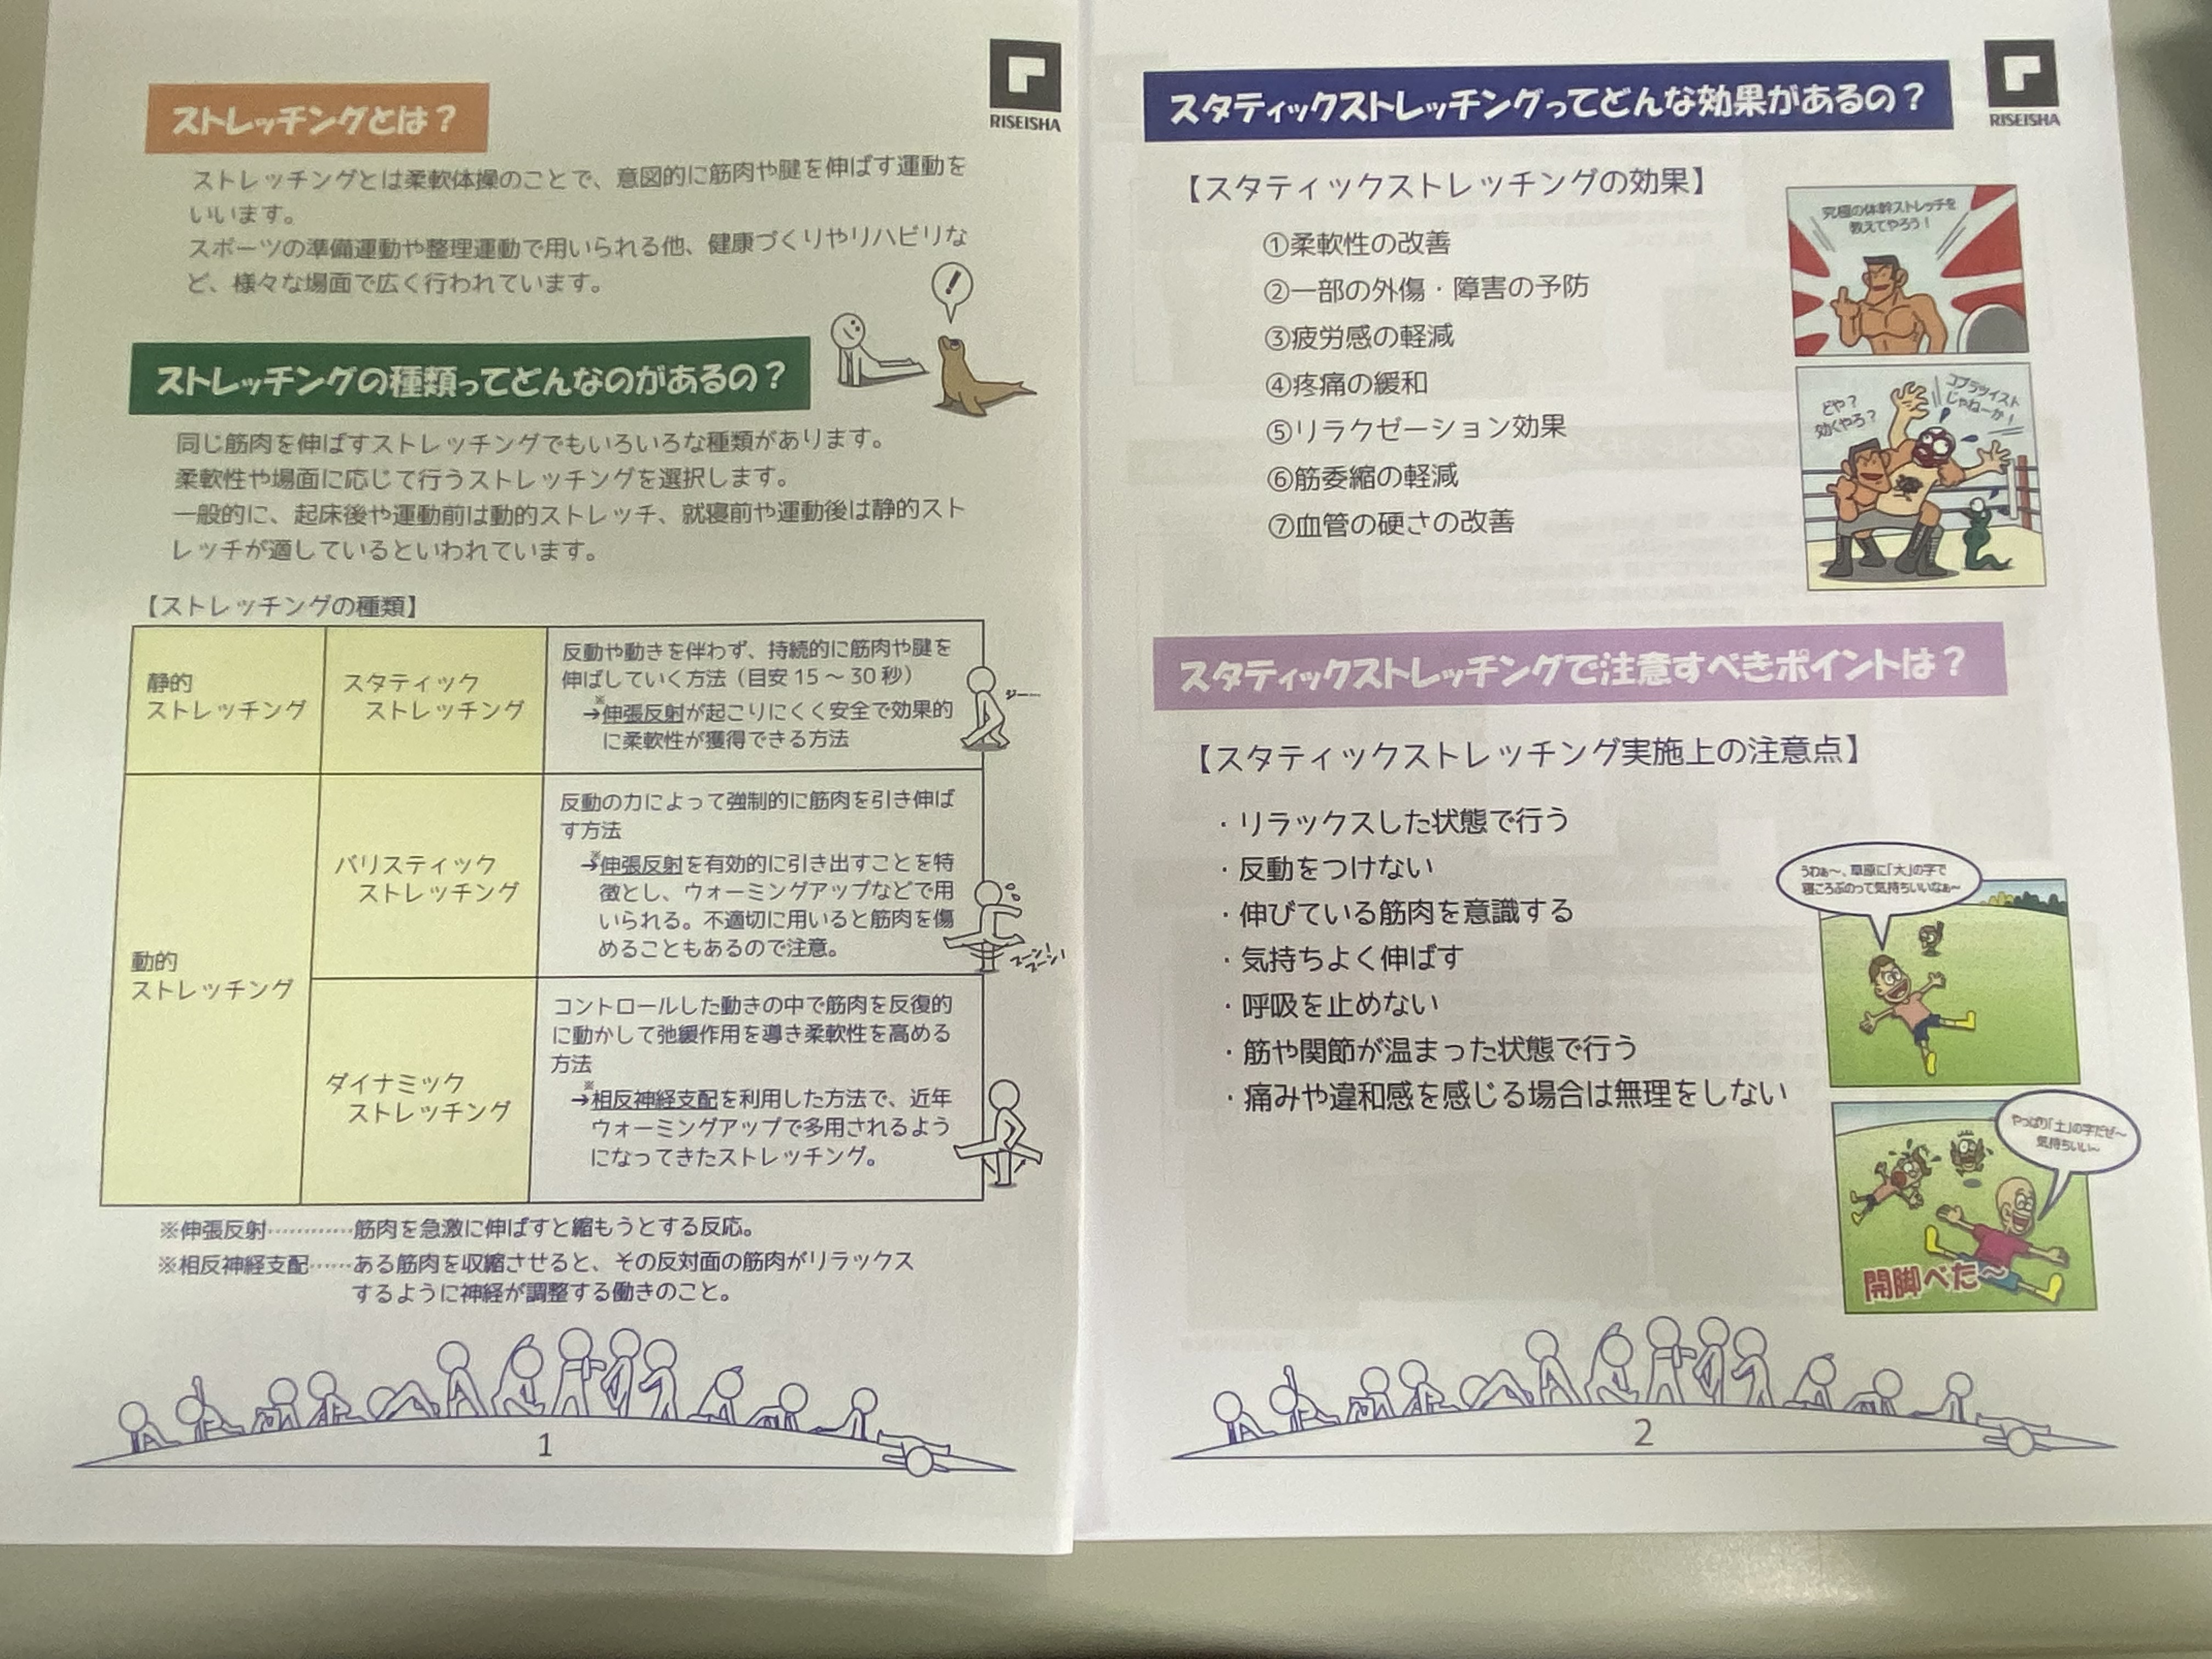 RISEISHA
ストレッチングとは？
ストレッチングとは柔軟体操のことで、意図的に筋肉や腱を伸ばす運動を
いいます。
スポーツの準備運動や整理運動で用いられる他、健康づくりやリハビリな
ど、様々な場面で広く行われています。
！
ストレッチングの種類ってどんなのがあるの？
同じ筋肉を伸ばすストレッチングでもいろいろな種類があります。
柔軟性や場面に応じて行うストレッチングを選択します。
一般的に、起床後や運動前は動的ストレッチ、就寝前や運動後は静的スト
レッチが適しているといわれています。
【ストレッチングの種類】
静的
ストレッチング
スタティック
ストレッチング
反動や動きを伴わず、持続的に筋肉や腱を
伸ばしていく方法（目安 15 ～ 30 秒）
※
→伸張反射が起こりにくく安全で効果的
に柔軟性が獲得できる方法
ジー
動的
ストレッチング
バリスティック
ストレッチング
反動の力によって強制的に筋肉を引き伸ば
す方法
※
→伸張反射を有効的に引き出すことを特
徴とし、ウォーミングアップなどで用
いられる。不適切に用いると筋肉を傷
めることもあるので注意。
ダイナミック
ストレッチング
コントロールした動きの中で筋肉を反復的
に動かして弛緩作用を導き柔軟性を高める
方法
※
→相反神経支配を利用した方法で、近年
ウォーミングアップで多用されるよう
になってきたストレッチング。
※伸張反射…………筋肉を急激に伸ばすと縮もうとする反応。
※相反神経支配……ある筋肉を収縮させると、その反対面の筋肉がリラックス
するように神経が調整する働きのこと。
1
RISEISHA
スタティックストレッチングってどんな効果があるの？
【スタティックストレッチングの効果】
①柔軟性の改善
②一部の外傷・障害の予防
③疲労感の軽減
④疼痛の緩和
⑤リラクゼーション効果
⑥筋萎縮の軽減
⑦血管の硬さの改善
究極の体幹ストレッチを
教えてやろう！
どや？
効くやろ？
コブラツイスト
じゃねーか！
スタティックストレッチングで注意すべきポイントは？
【スタティックストレッチング実施上の注意点】
・リラックスした状態で行う
・反動をつけない
・伸びている筋肉を意識する
・気持ちよく伸ばす
・呼吸を止めない
・筋や関節が温まった状態で行う
・痛みや違和感を感じる場合は無理をしない
うわぁ～、草原に「大」の字で
寝ころぶのって気持ちいいなぁ～
やっぱり「土」の字だぜ～
気持ちいい～
開脚べた～
2